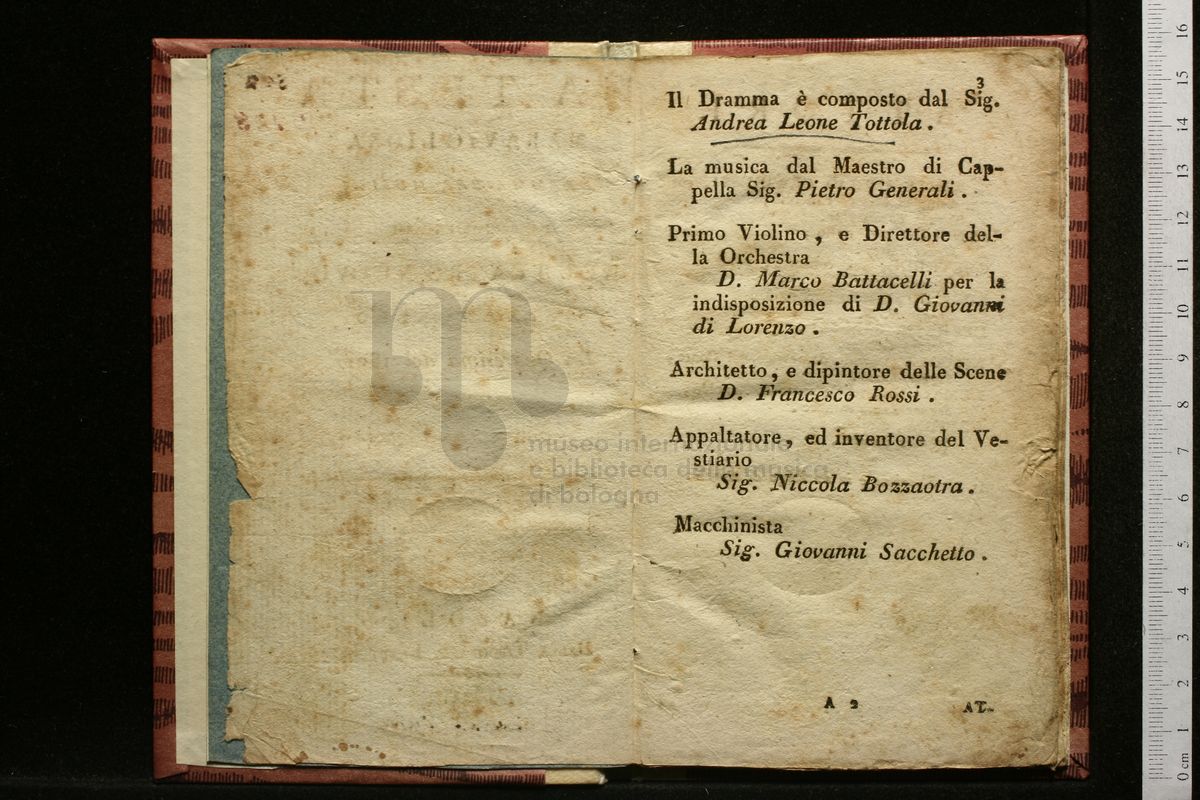 3
Il Dramma è composto dal Sig.
Andrea Leone Tottola.
La musica dal Maestro di Cap-
pella Sig. Pietro Generali.
Primo Violino, e Direttore del-
la Orchestra
D. Marco Battacelli per la
indisposizione di D. Giovanni
di Lorenzo.
Architetto, e dipintore delle Scene
D. Francesco Rossi.
Appaltatore, ed inventore del Ve-
stiario
Sig. Niccola Bozzaotra.
Macchinista
Sig. Giovanni Sacchetto.
A 2 AT-
museo internazionale
e biblioteca della musica
di bologna
0 cm 1 2 3 4 5 6 7 8 9 10 11 12 13 14 15 16